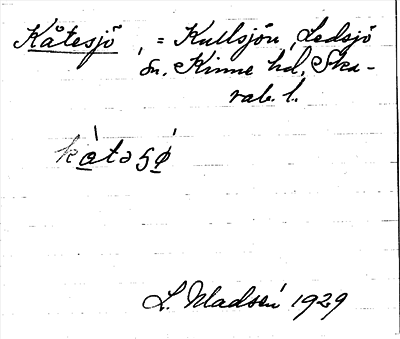 Kåtesjö, = Kullsjön, Ledsjö
sn. Kinne hd, Ska-
rab. l.
kåtəʂø̀
L. Madsén 1929